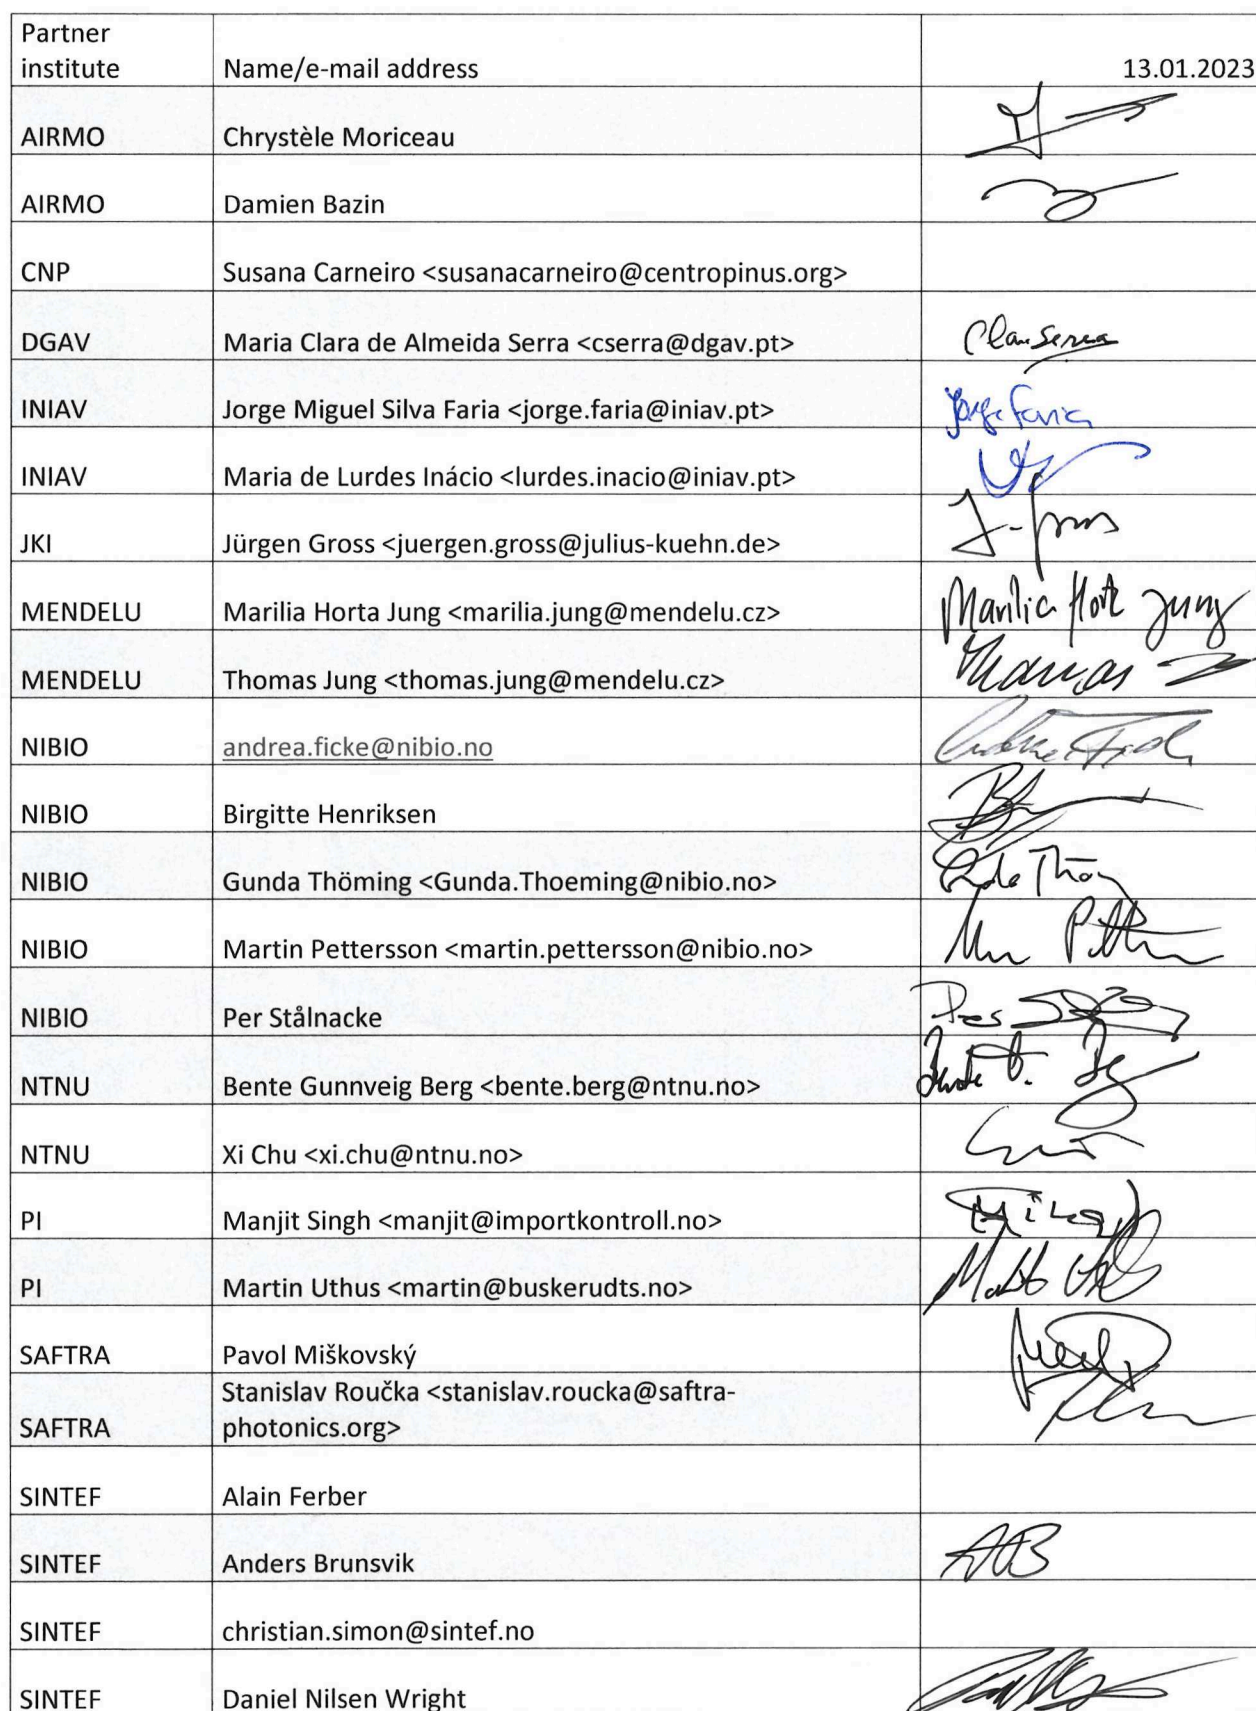 Partner
institute Name/e-mail address 13.01.2023
AIRMO Chrystèle Moriceau
AIRMO Damien Bazin
CNP Susana Carneiro <susanacarneiro@centropinus.org>
DGAV Maria Clara de Almeida Serra <cserra@dgav.pt> Clara Serra
INIAV Jorge Miguel Silva Faria <jorge.faria@iniav.pt> Jorge Faria
INIAV Maria de Lurdes Inácio <lurdes.inacio@iniav.pt>
JKI Jürgen Gross <juergen.gross@julius-kuehn.de>
MENDELU Marilia Horta Jung <marilia.jung@mendelu.cz> Marilia Horta Jung
MENDELU Thomas Jung <thomas.jung@mendelu.cz> Thomas
NIBIO andrea.ficke@nibio.no
NIBIO Birgitte Henriksen
NIBIO Gunda Thöming <Gunda.Thoeming@nibio.no>
NIBIO Martin Pettersson <martin.pettersson@nibio.no>
NIBIO Per Stålnacke
NTNU Bente Gunnveig Berg <bente.berg@ntnu.no>
NTNU Xi Chu <xi.chu@ntnu.no>
PI Manjit Singh <manjit@importkontroll.no>
PI Martin Uthus <martin@buskerudts.no>
SAFTRA Pavol Miškovský
Stanislav Roučka <stanislav.roucka@saftra-
SAFTRA photonics.org>
SINTEF Alain Ferber
SINTEF Anders Brunsvik AB
SINTEF christian.simon@sintef.no
SINTEF Daniel Nilsen Wright